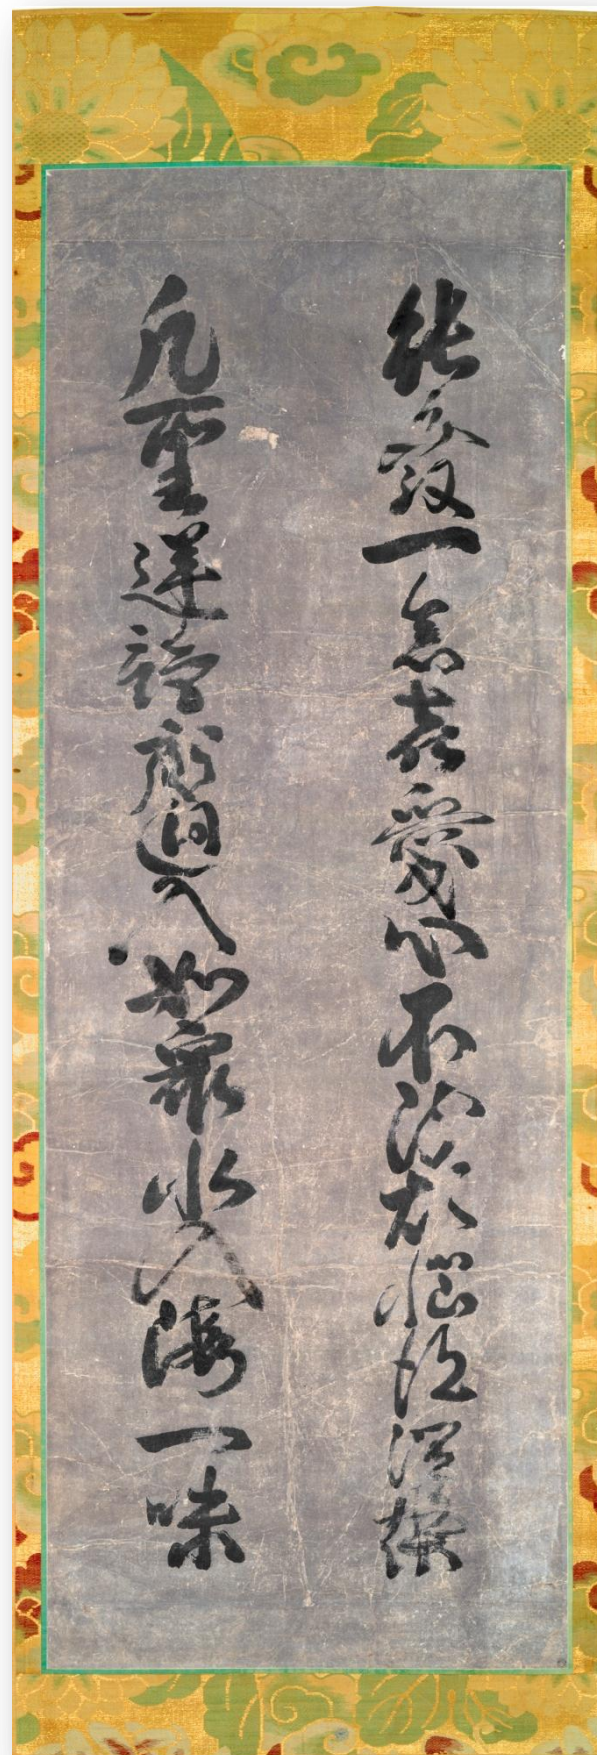 能發一念喜愛心不斷煩惱得涅槃
凡聖逆謗齊廻入如衆水入海一味